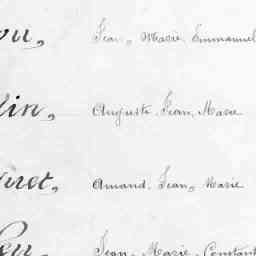 ou, Jean, Marie, Emmanuel
lin, Auguste, Jean, Marie
Amand, Jean, Marie
Jean, Marie, Constant